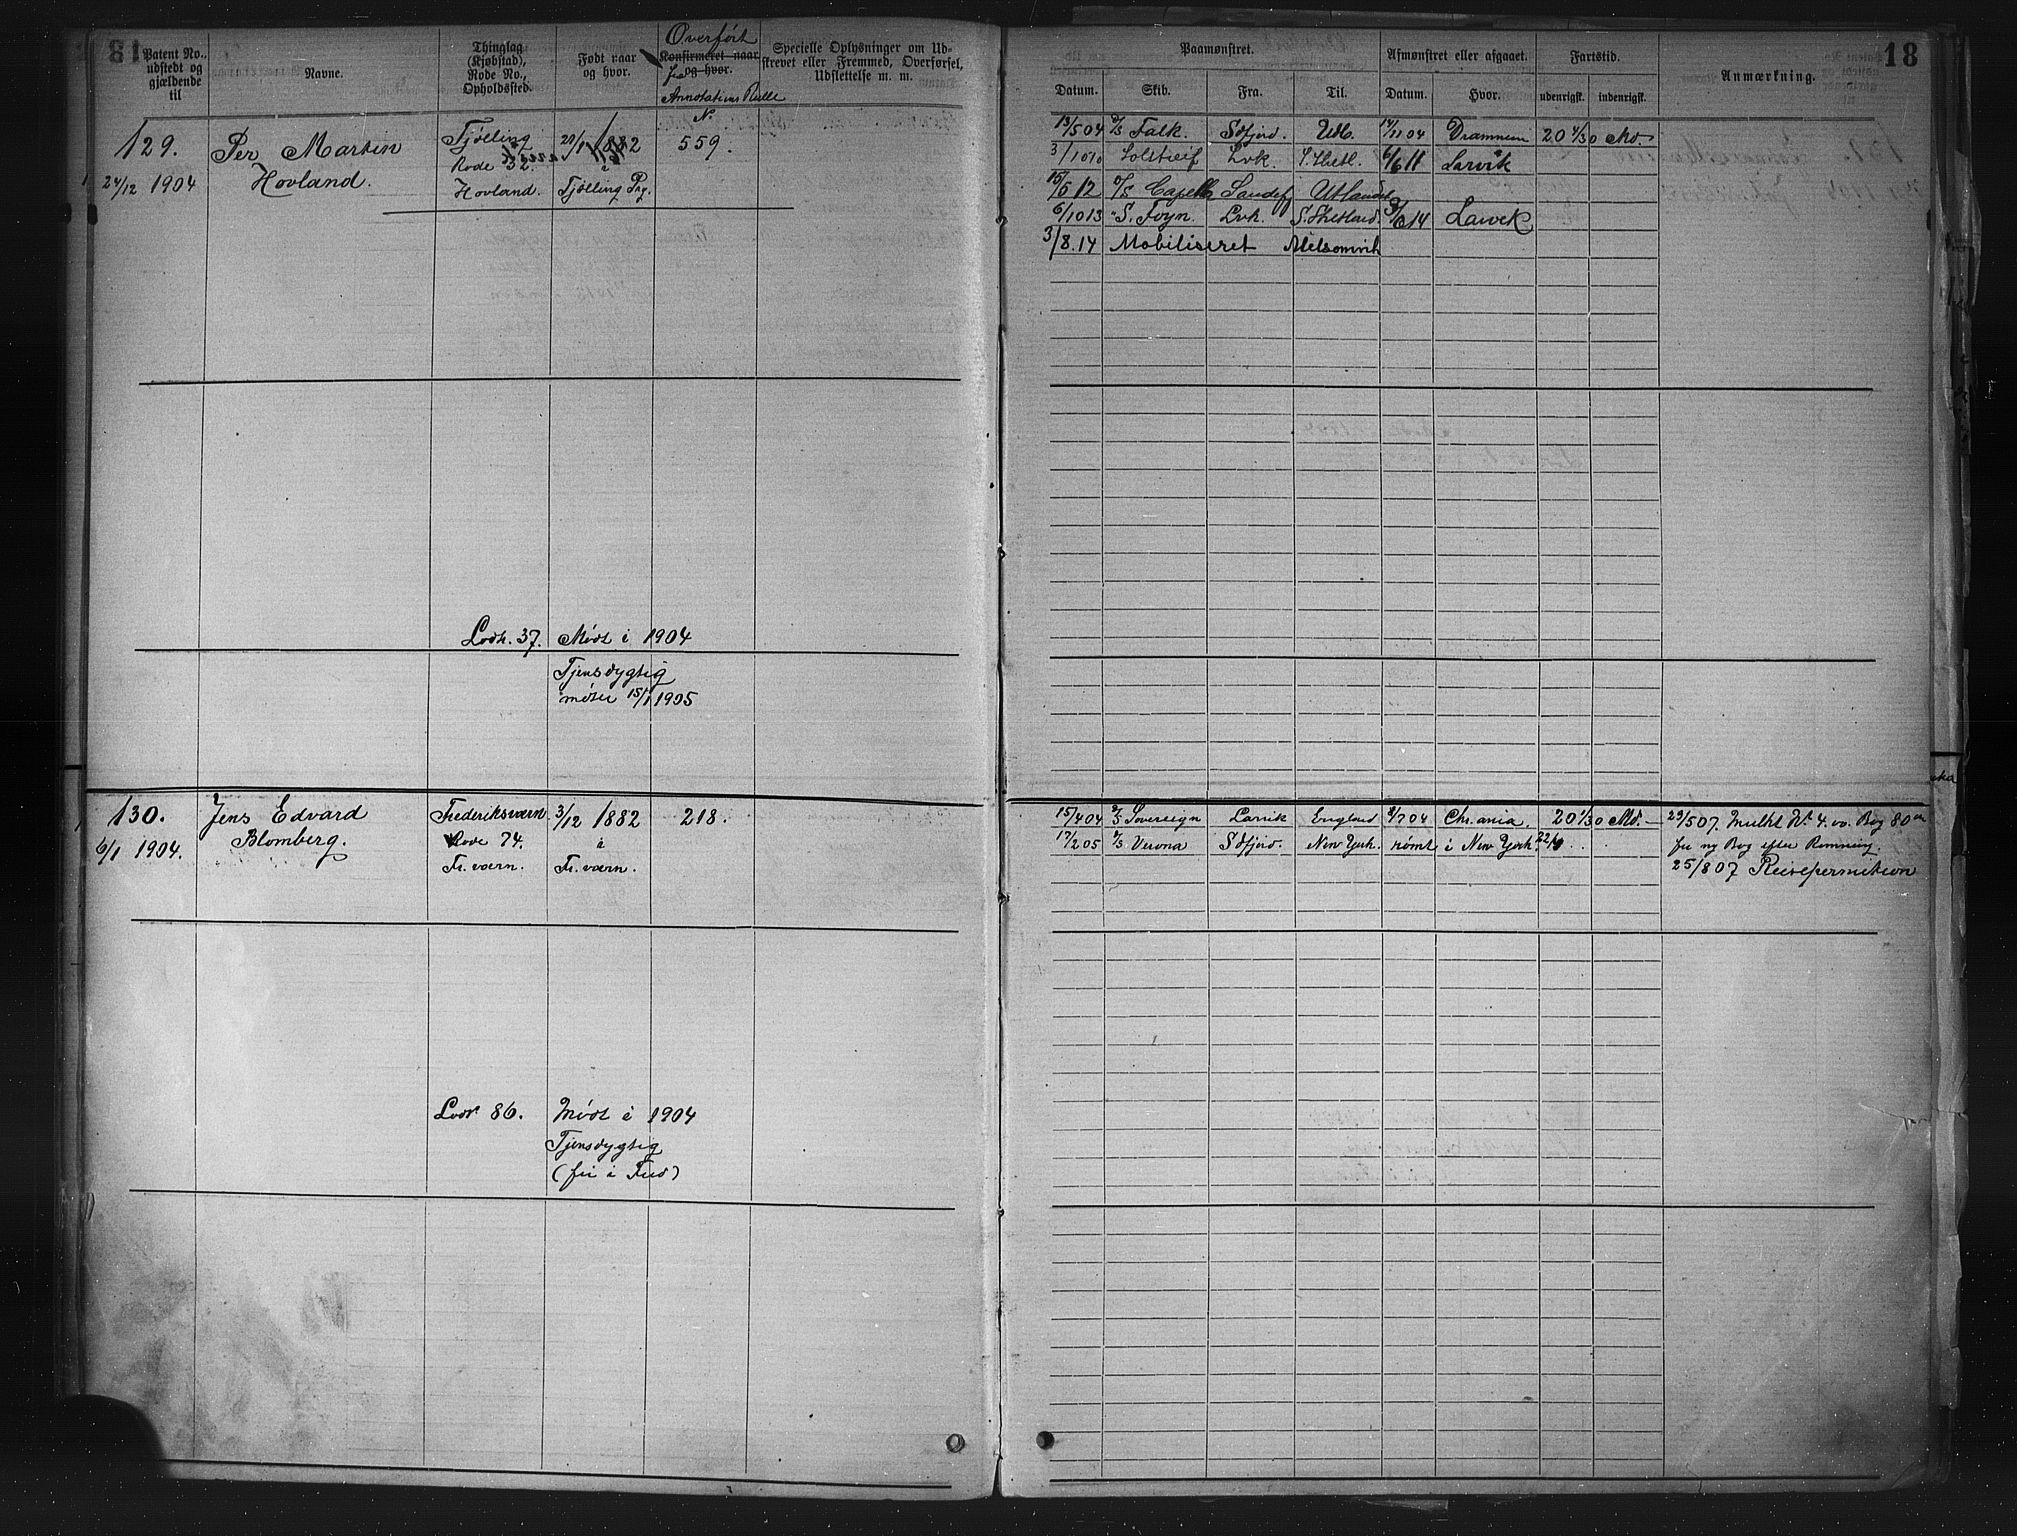 18
Patent No., udstedt og gjældende til
Navne.
Thinglag (Kjøbstad), Rode No., Opholdssted.
Født naar og hvor.
Overført
fra
Konfirmeret naar og hvor.
Annotations Rulle
No
Specielle Oplysninger om Udstrevet eller Fremmed, Overførsel, Udslettelse m. m.
129.
24/12 1904
Per Martin
Hovland.
Tjølling
Rode 32.
Hovland.
1882
i
Tjølling Prg.
559.
Lodtr. 37. Mødt i 1904
Tjensdygtig
møter 15/1 1905
130.
6/1 1904.
Jens Edvard
Blomberg.
Frederiksværn
Rode 74.
Fr. værn.
3/12 1882
i
Fr. værn.
218.
Lodtr 86. Mødt i 1904
Tjensdygtig
(fri i Fred)
18
Paamønstret.
Afmønstret eller afgaaet.
Fartstid.
Anmærkning.
Datum. Skib. Fra. Til. Datum. Hvor. udenrigst. indenrigst.
13/5 04 D/S Falk. Sdfjord. Udl. 14/11 04 Drammen 20 4/30 Md
3/10 10 Solstreif Lvk. S. Shetl. 6/6 11 Larvik
15/6 12 D/S Capella Sandef Utlandet
6/10 13 "S. Foyn. Lvk. S. Shetland. 14 Larvik
3/8.14 Mobiliseret Melsomvik
15/4 04 D/S Sovereign Larvik England 8/7 04 Chr.ania. 20 1/30 Md. 29/5 07. Mulkt Kr 4.00. Bog 80
17/2 05 D/S Verona Sdfjord. New York. rømt i New York. 22/4 for ny Bog efter Rømning.
25/8 07 Reisepermition